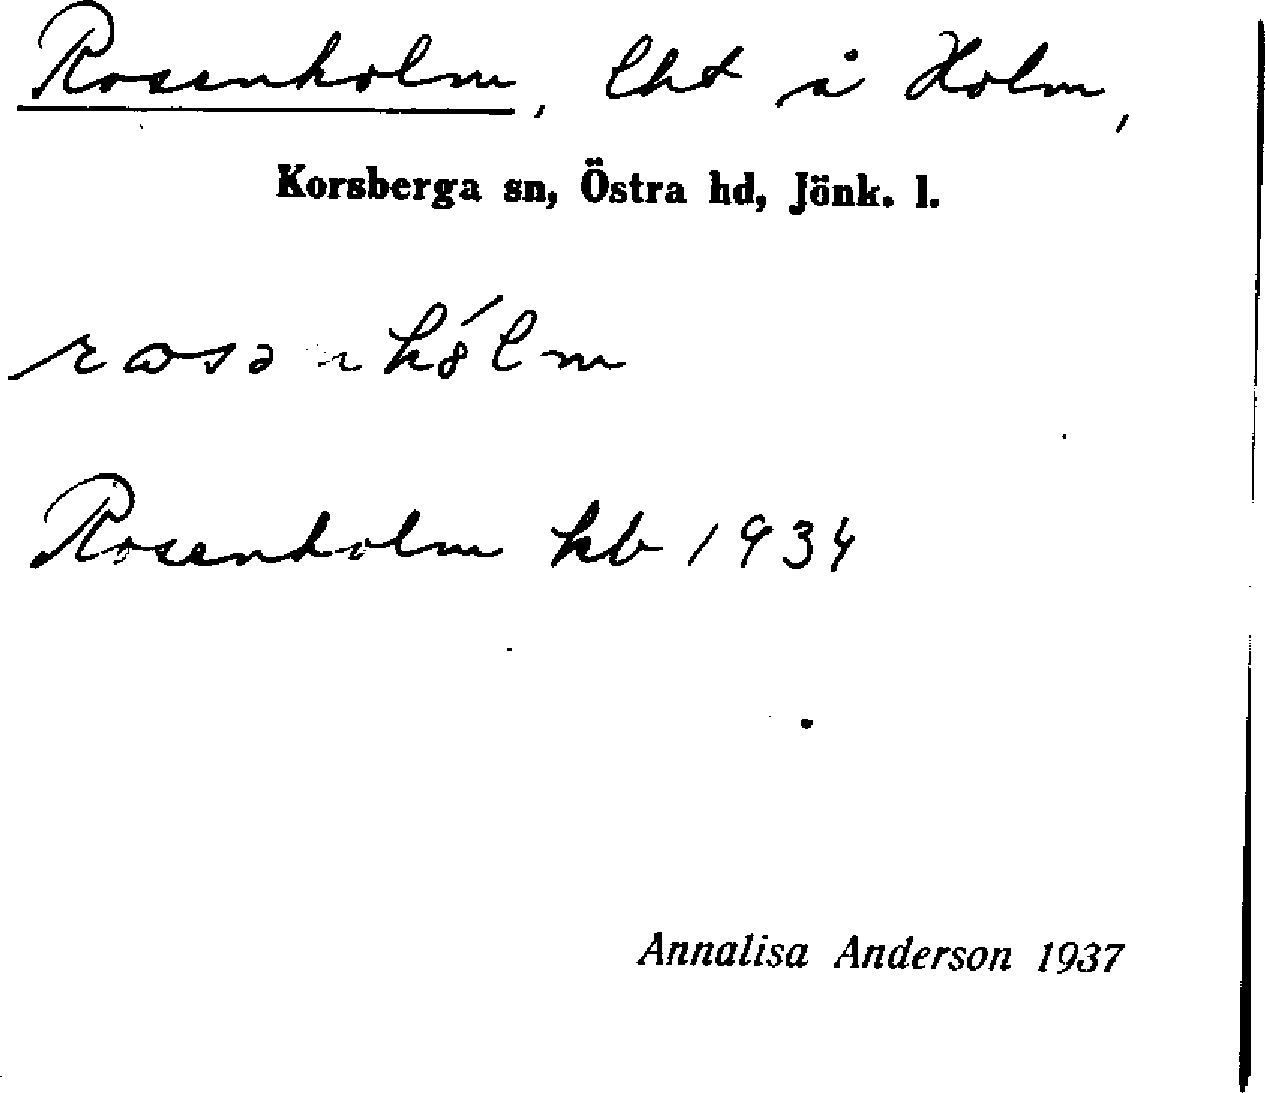 Rosenholm, lht å Holm,
Korsberga sn, Östra hd, Jönk. l.
Rosenholm hb 1934
Annalisa Anderson 1937